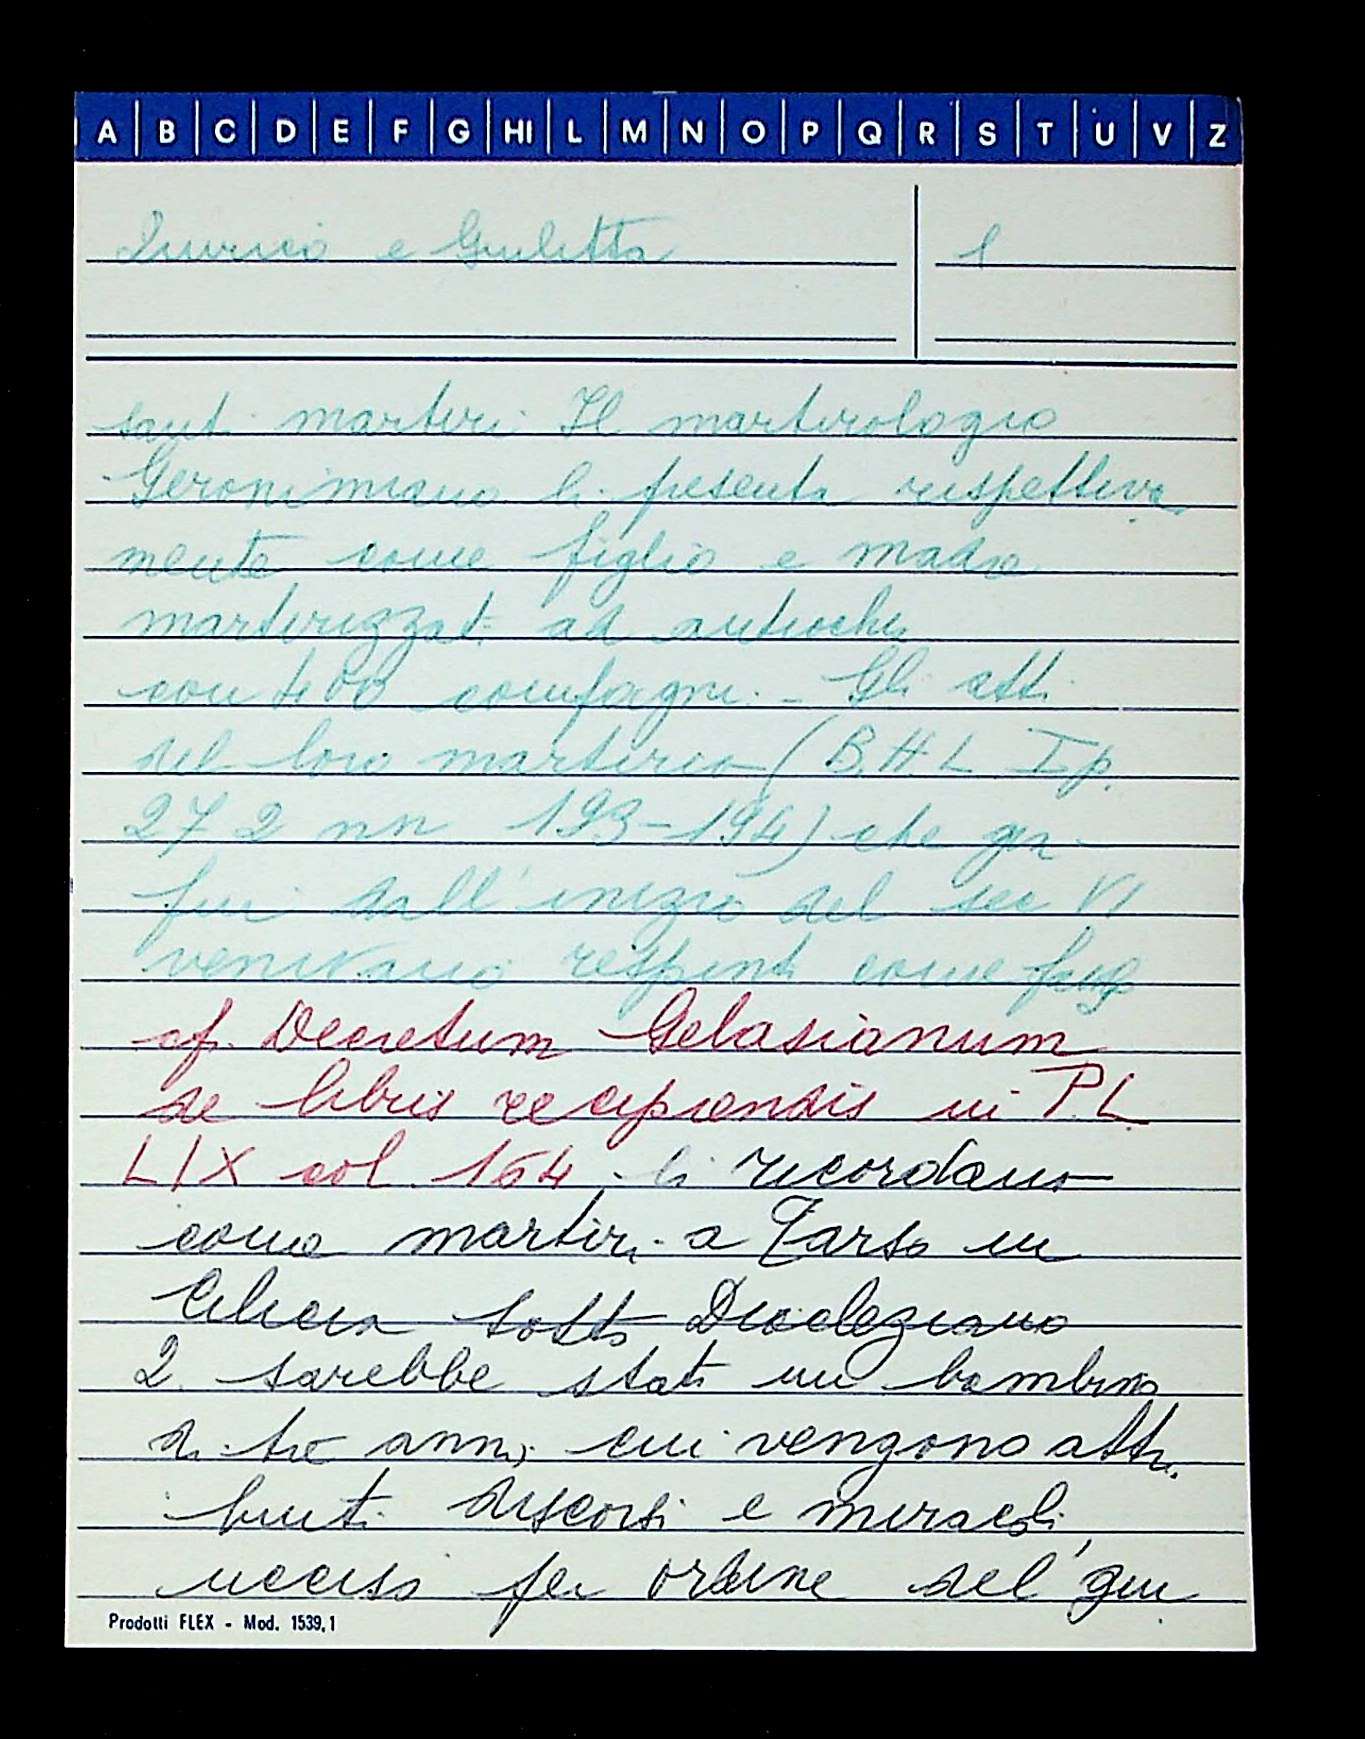 A B C D E F G HI L M N O P Q R S T U V Z
Quirico e Giulitta 1
santi martiri Il martirologio
Geronimiano li presenta rispettiva
mente come figlio e madre
martirizzati ad antiochia
con 400 compagni. - Gli atti
del loro martirio (B.H.L. I p.
272 nn 193-194) che già
fin dall'inizio del sec VI
venivano respinti come
cf. Decretum Gelasianum
de libris recipiendis in P.L.
LIX col. 164 li ricordano
come martiri a Tarso in
Cilicia sotto Diocleziano
Q. sarebbe stato un bambino
di tre anni, cui vengono attri
buiti discorsi e miracoli,
ucciso per ordine del giu
Prodotti FLEX - Mod. 1539,1